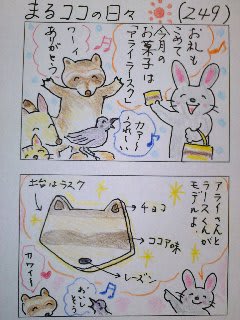 まるココの日々 (249)
お礼も
こめて
今月の
お菓子は
「アライラースク」
ワーイ
ありがとう
カアー
うれしい
アライさんと
ラースくんが
モデルよ。
土台はラスク
チョコ
ココア味
レーズン
カワイイ
おいし
そう